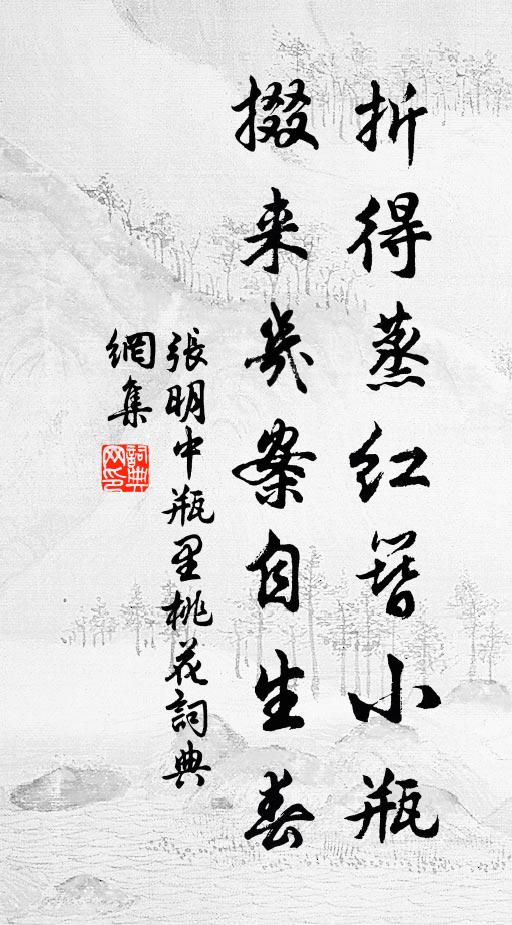 折得蒸红簪小瓶
掇来几案自生春
張明中瓶里桃花詞典
網集
詞典
网印